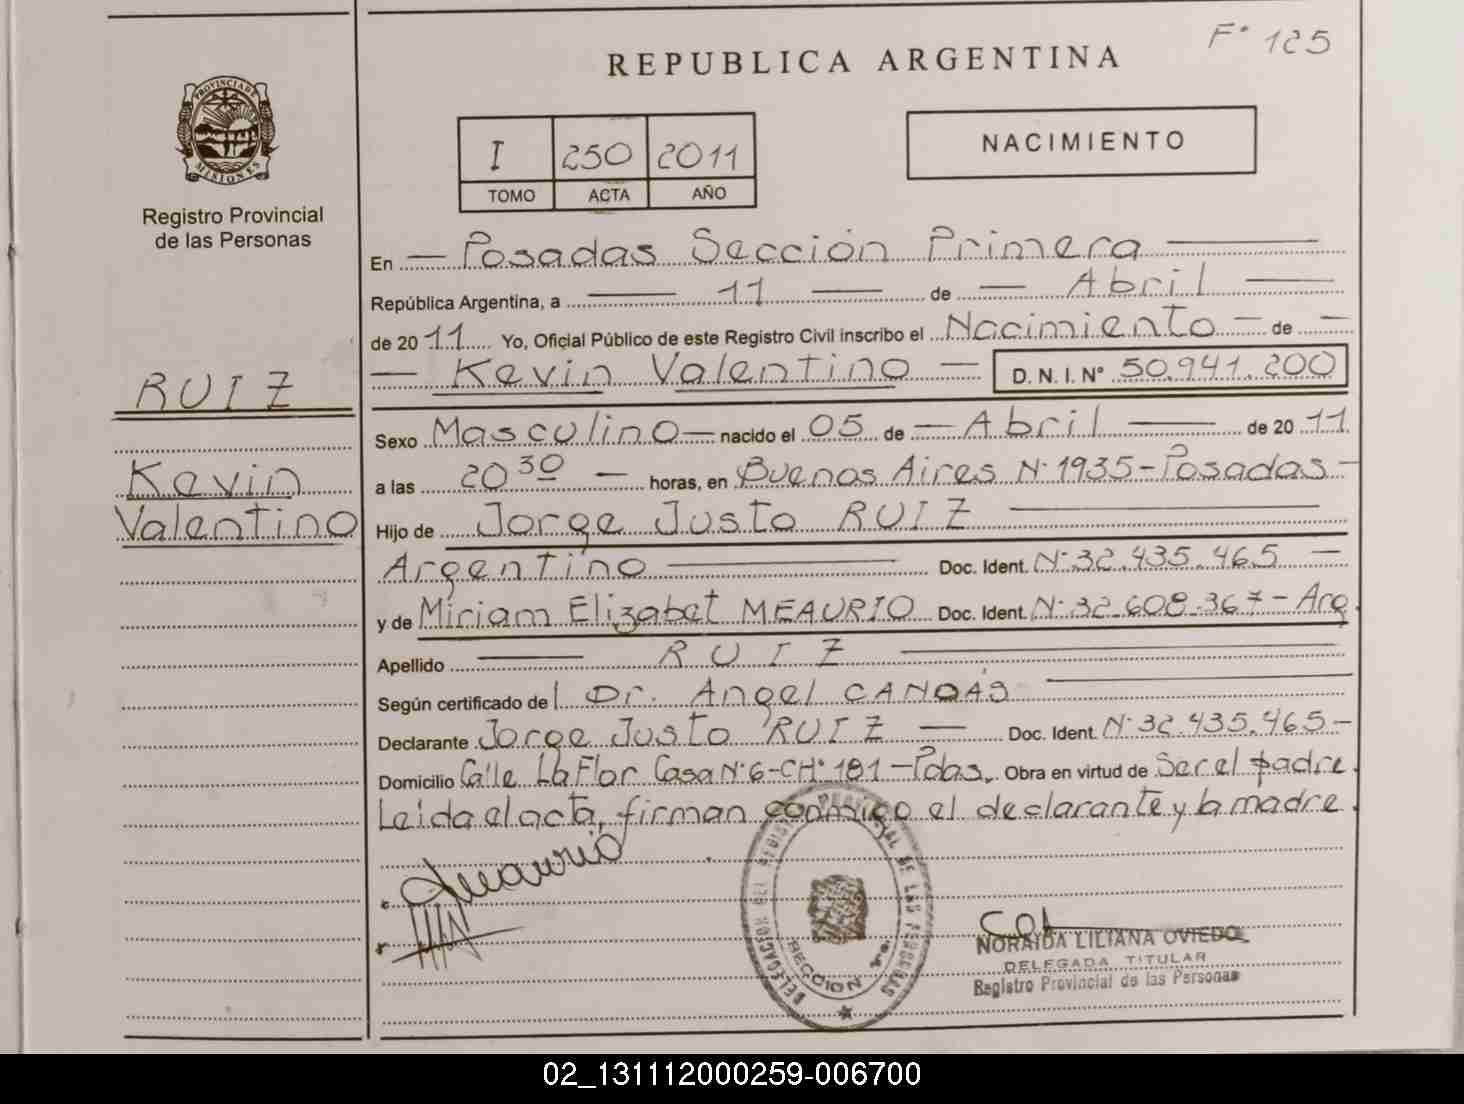 F° 125
REPUBLICA ARGENTINA
PROVINCIA DE
MISIONES
Registro Provincial
de las Personas
I 250 2011
TOMO ACTA AÑO
NACIMIENTO
En — Posadas Sección Primera —
República Argentina, a — 11 — de — Abril —
de 2011. Yo, Oficial Público de este Registro Civil inscribo el Nacimiento — de —
— Kevin Valentino — D. N. I. N° 50.941.200
RUIZ
Kevin
Valentino
Sexo Masculino — nacido el 05 de — Abril — de 2011
a las 20 30 — horas, en Buenos Aires N° 1935 - Posadas -
Hijo de Jorge Justo RUIZ —
Argentino — Doc. Ident. N° 32.435.465 —
y de Miriam Elizabet MEAURIO Doc. Ident. N° 32.608.367 - Arg.
Apellido — RUIZ —
Según certificado del Dr. Angel CANDÁS —
Declarante Jorge Justo RUIZ — Doc. Ident. N° 32.435.465 -
Domicilio Calle La Flor Casa N° 6 - CH° 181 - Pdas. Obra en virtud de Ser el padre.
Leida el acta, firman conmigo el declarante y la madre.
Meaurio
DELEGACION DEL REGISTRO PROVINCIAL DE LAS PERSONAS
SECCION 1ra.
NORAIDA LILIANA OVIEDO
DELEGADA TITULAR
Registro Provincial de las Personas
02_131112000259-006700